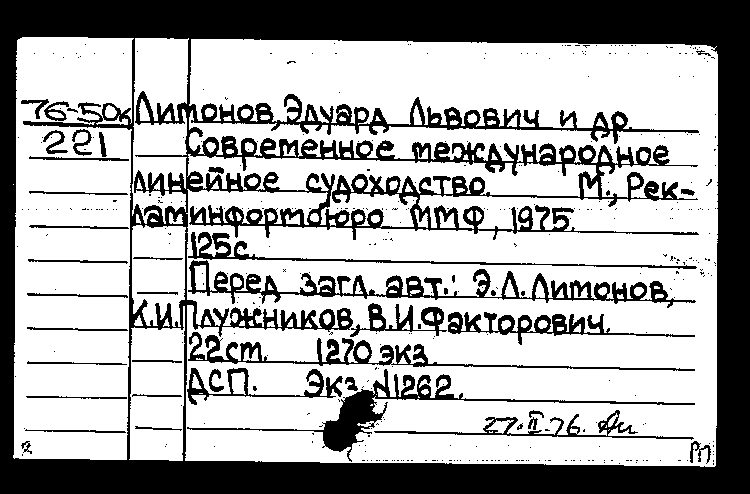 76-50к Лимонов, Эдуард Львович и др.
221 Современное международное
линейное судоходство. М., Рек-
ламинформбюро ММФ, 1975.
125с.
Перед загл. авт.: Э.Л.Лимонов,
К.И.Плужников, В.И.Факторович.
22ст. 1270 экз.
ДСП. Экз. N1262.
27.II.76.